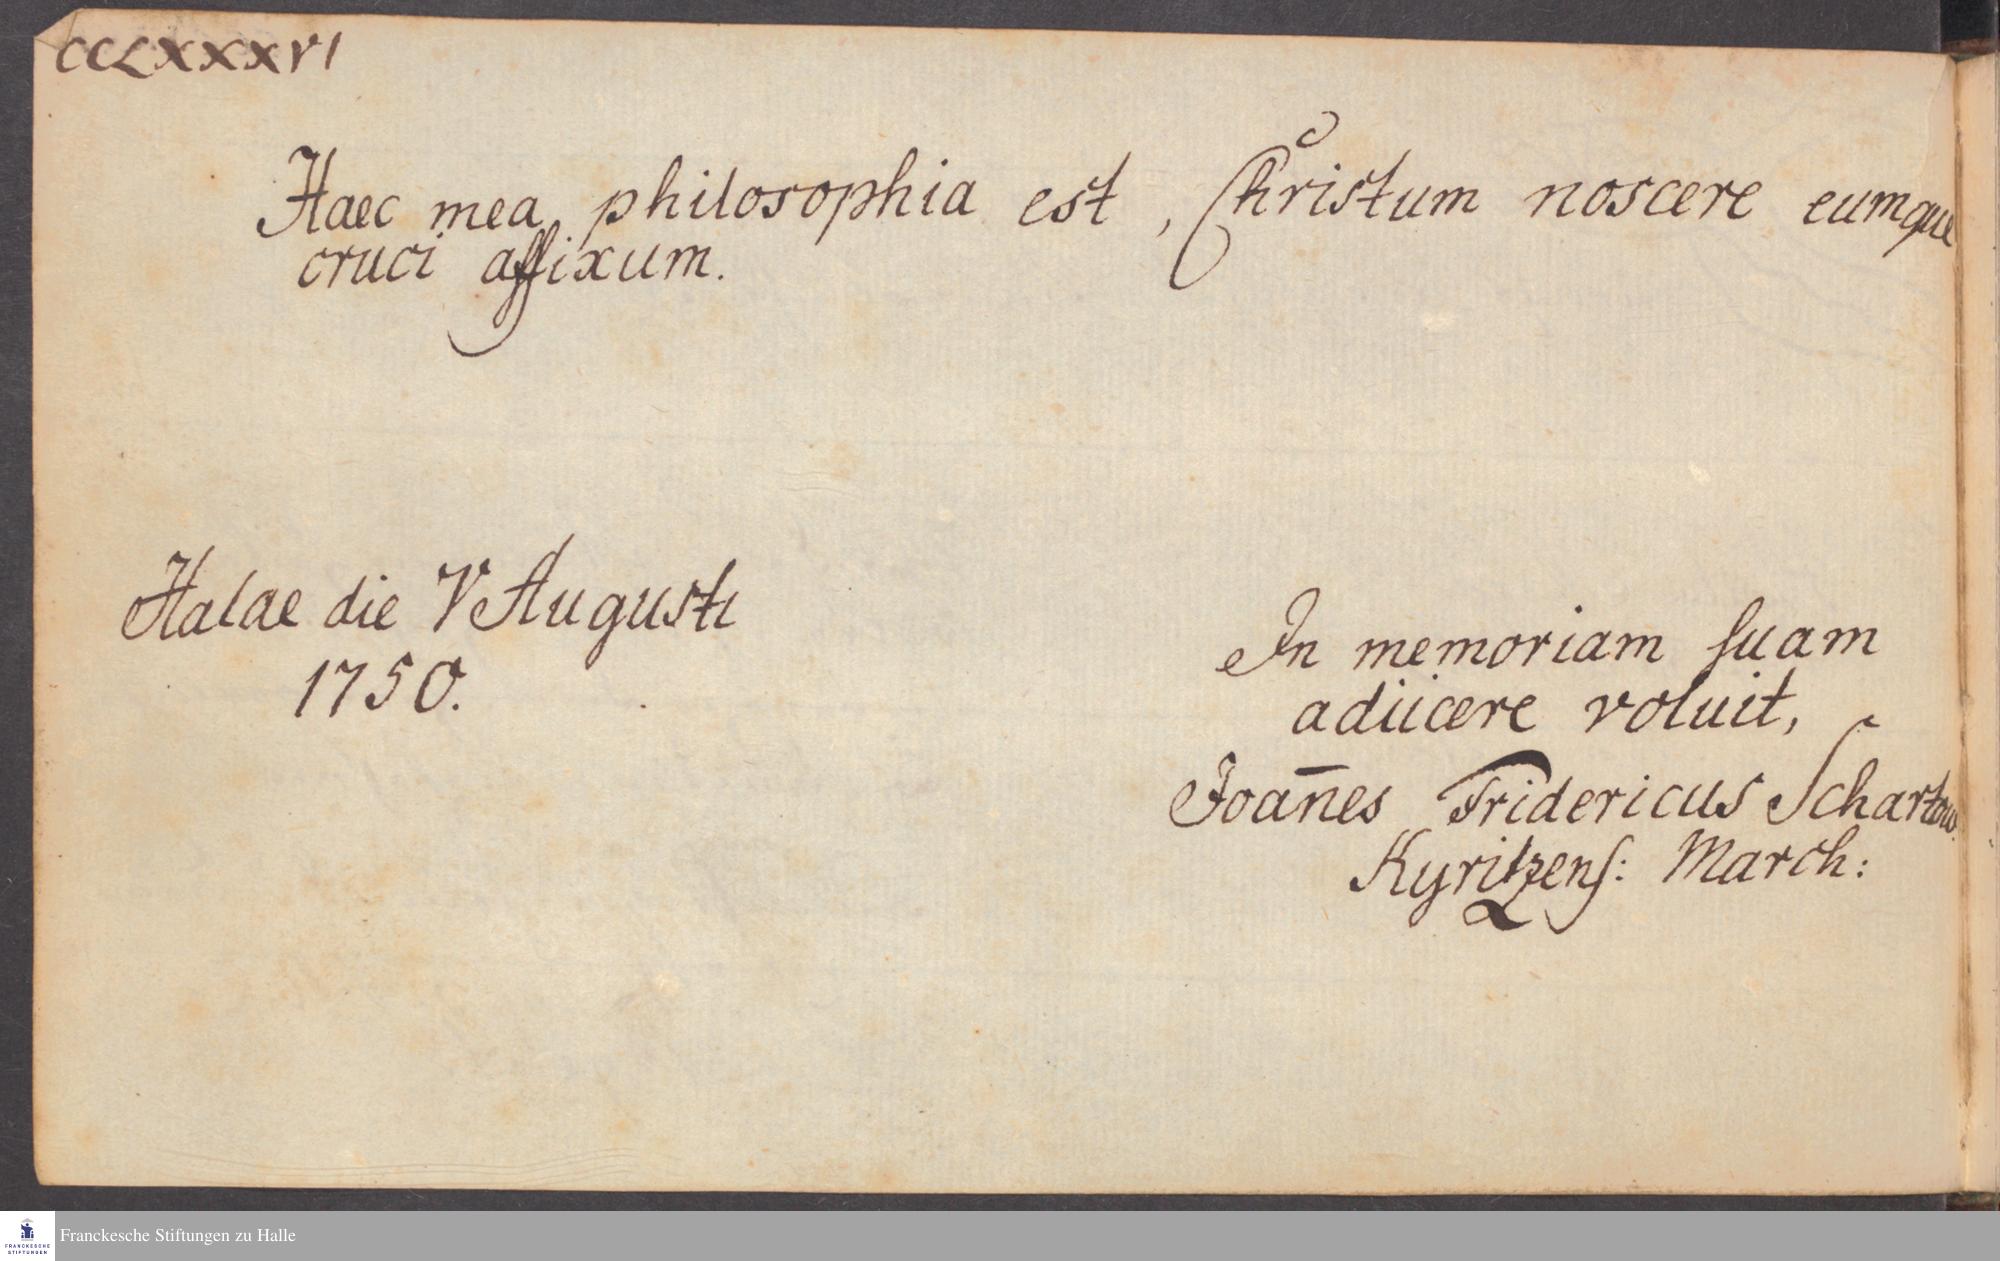 CCLXXXVI
Haec mea philosophia est, Christum noscere eumque
cruci affixum.
Halae die V Augusti
1750.
In memoriam suam
adiicere voluit,
Joan̄es Fridericus Schartow.
Kyritzens: March:
Franckesche Stiftungen zu Halle
FRANCKESCHE
STIFTUNGEN